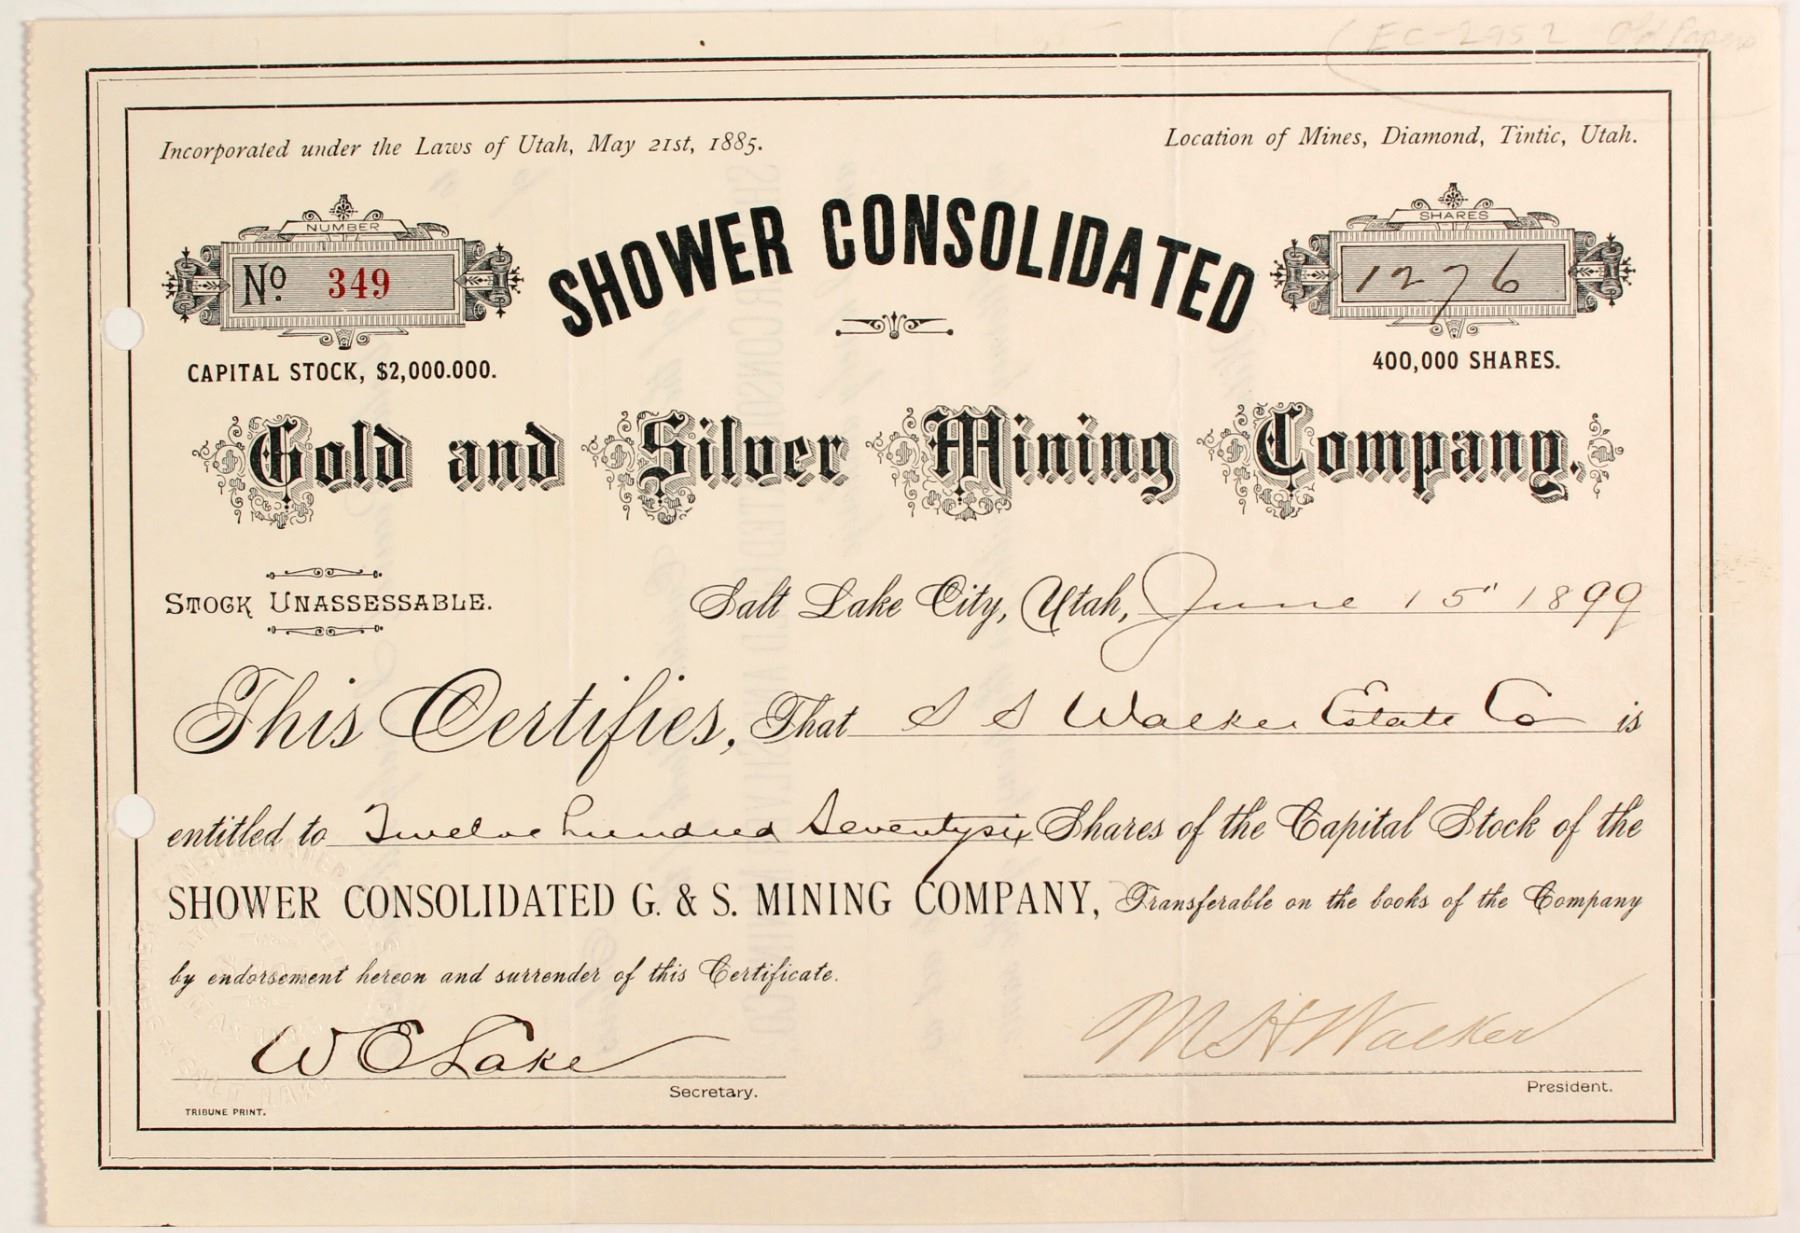 EC-2952 Old Papers
Incorporated under the Laws of Utah, May 21st, 1885.
Location of Mines, Diamond, Tintic, Utah.
NUMBER
No. 349
SHOWER CONSOLIDATED
SHARES
1276
CAPITAL STOCK, $2,000.000.
400,000 SHARES.
Gold and Silver Mining Company.
STOCK UNASSESSABLE.
Salt Lake City, Utah, June 15' 1899
This Certifies, That S S Walker Estate Co is
entitled to Twelve hundred Seventysix Shares of the Capital Stock of the
SHOWER CONSOLIDATED G. & S. MINING COMPANY, Transferable on the books of the Company
by endorsement hereon and surrender of this Certificate.
W E Lake
Secretary.
M H Walker
President.
TRIBUNE PRINT.